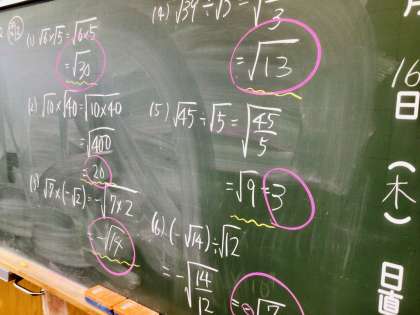 (1) √6×√5=√6×5
=√30
(2) √10×√40=√10×40
=√400
=20
(3) √7×(-√2)=-√7×2
=-√14
(4) √39÷√3=√
3
=√13
(5) √45÷√5=√45/5
=√9=3
(6) (-√14)÷√12
=-√14/12
=-√7
月
16
日
(木)
日直